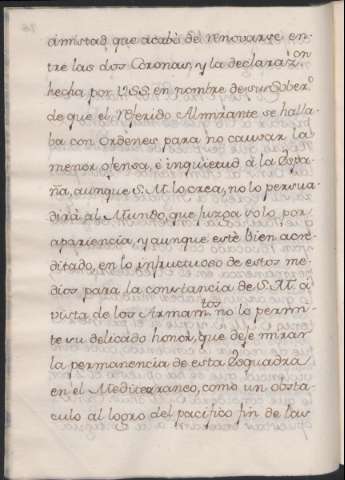 amistad que acaba de renovarse en-
tre las dos Coronas, y la declaraz.on
hecha por V.SS. en nombre de su Sober.o
de que el referido Almirante se halla-
ba con Ordenes para no causar la
menor ofensa, é inquietud á la Espa-
ña, aunque S.M. lo crea, no lo persua-
dirá al Mundo, que juzga solo por
apariencia, y aunque esté bien acre-
ditado, en lo infructuoso de estos me-
dios para la constancia de S.M. á
vista de los Armam.tos no lo permi-
te su delicado honor, que deje mirar
la permanencia de esta Esquadra
en el Mediterraneo, como un obsta-
culo al logro del pacifico fin de las